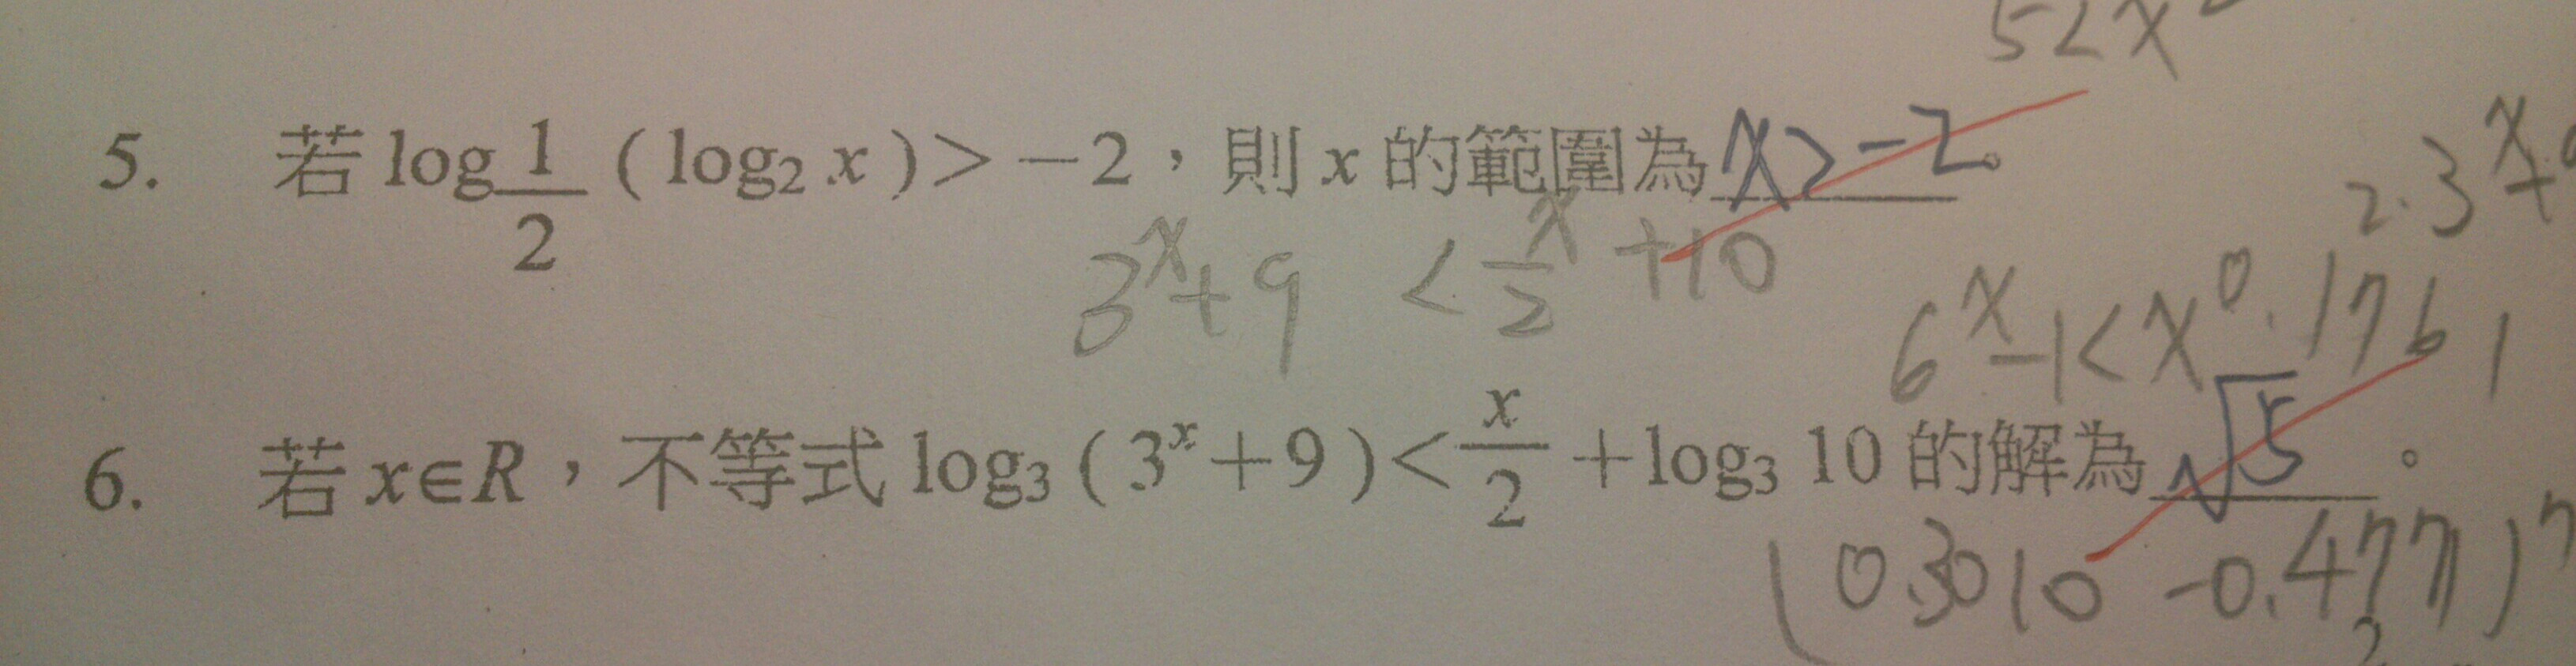 52x
5. 若 log 1/2 ( log₂ x ) > －2，則 x 的範圍為 x>-2。
2·3ˣ+
3ˣ+9 < x/2 +10
6ˣ-1<x⁰·¹⁷⁶¹
6. 若 x∈R，不等式 log₃ ( 3ˣ+9 ) < x/2 +log₃ 10 的解為 √5 。
(0.3010 -0.4771)